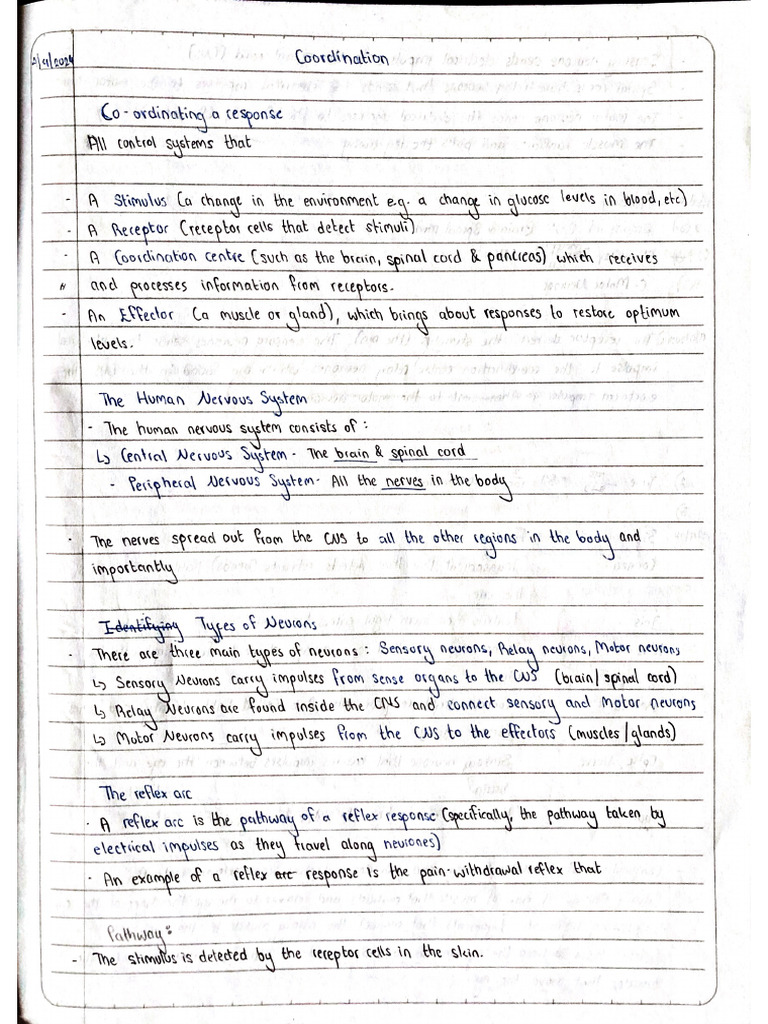 2/9/2024
Coordination
Co-ordinating a response
All control systems that
- A Stimulus (a change in the environment e.g. a change in glucose levels in blood, etc)
- A Receptor (receptor cells that detect stimuli)
- A Coordination centre (such as the brain, spinal cord & pancreas) which receives
and processes information from receptors.
- An Effector (a muscle or gland), which brings about responses to restore optimum
levels.
The Human Nervous System
- The human nervous system consists of :
↳ Central Nervous System - The brain & spinal cord
- Peripheral Nervous System - All the nerves in the body
- The nerves spread out from the CNS to all the other regions in the body and
importantly
Identifying Types of Neurons
- There are three main types of neurons : Sensory neurons, Relay neurons, Motor neurons
↳ Sensory Neurons carry impulses from sense organs to the CNS (brain/spinal cord)
↳ Relay Neurons are found inside the CNS and connect sensory and motor neurons
↳ Motor Neurons carry impulses from the CNS to the effectors (muscles/glands)
The reflex arc
- A reflex arc is the pathway of a reflex response (specifically, the pathway taken by
electrical impulses as they travel along neurones)
- An example of a reflex arc response is the pain-withdrawal reflex that
Pathway:
- The stimulus is detected by the receptor cells in the skin.